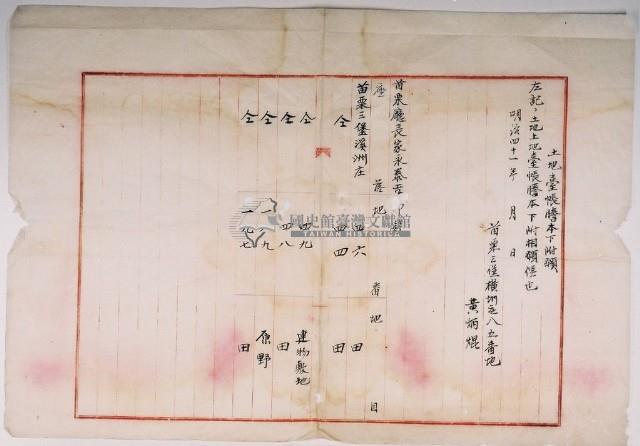 土地臺帳謄本下附願
左記ノ土地土地臺帳謄本下附相願候也
明治四十一年 月 日
苗栗三堡橫圳庄八五番地
黃炳焜
苗栗廳長家永泰吉
座 落 地 番 地 目
苗栗三堡溪洲庄 四六 田
仝 四四 田
仝 四九 建物敷地
仝 四八 田
仝 原野
仝 一九七 田
國史館臺灣文獻館
TAIWAN HISTORICA